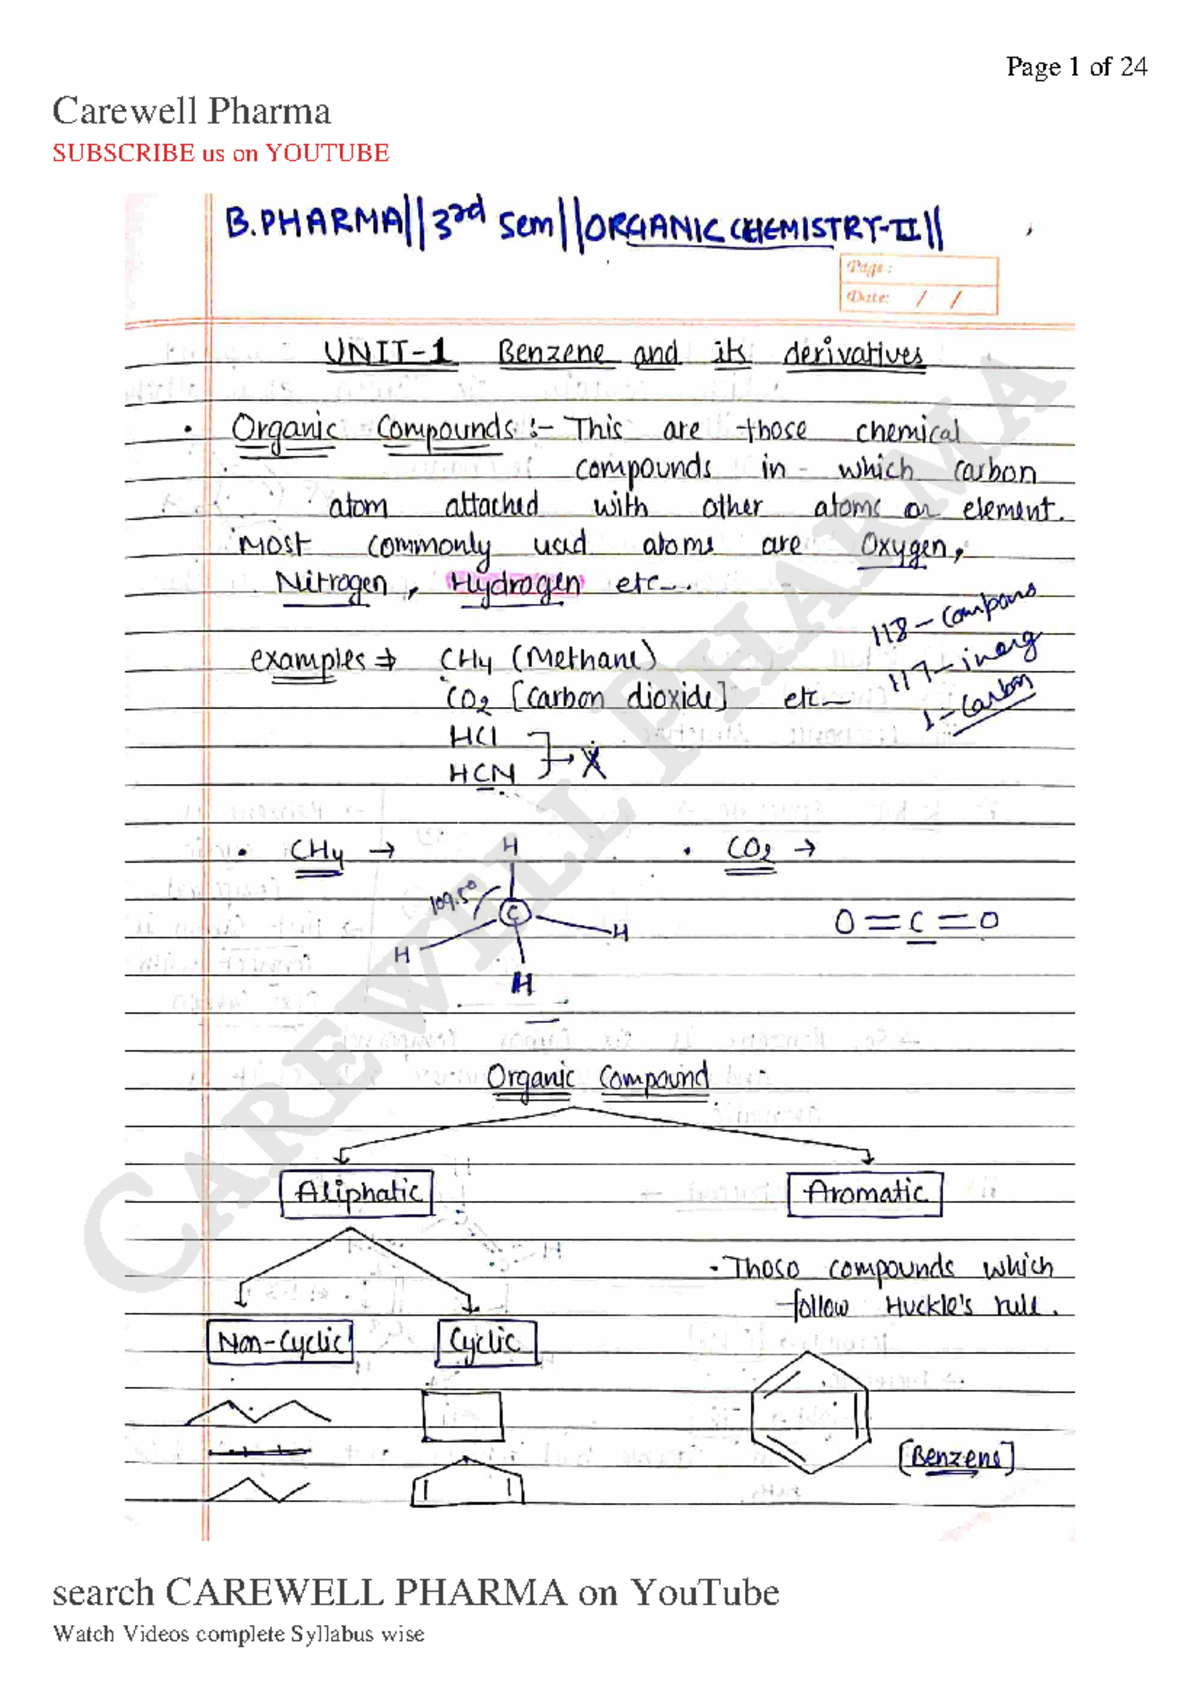 Page 1 of 24
Carewell Pharma
SUBSCRIBE us on YOUTUBE
B.PHARMA||3rd Sem||ORGANIC CHEMISTRY-II||
Page:
Date: / /
UNIT-1 Benzene and its derivatives
• Organic Compounds :- This are those chemical
compounds in which carbon
atom attached with other atoms or element.
Most commonly used atoms are Oxygen,
Nitrogen, Hydrogen etc....
118 - Compans
117 - inorg
1 - Carbon
examples ⇒ CH4 (Methane)
CO2 [Carbon dioxide] etc—
HCl
HCN → X
• CH4 →
• CO2 →
H
109.5°
C
H
H
H
O=C=O
Organic Compound
Aliphatic
Aromatic
• Those compounds which
follow Huckle's rule.
Non-Cyclic
Cyclic
[Benzene]
CAREWELL PHARMA
search CAREWELL PHARMA on YouTube
Watch Videos complete Syllabus wise